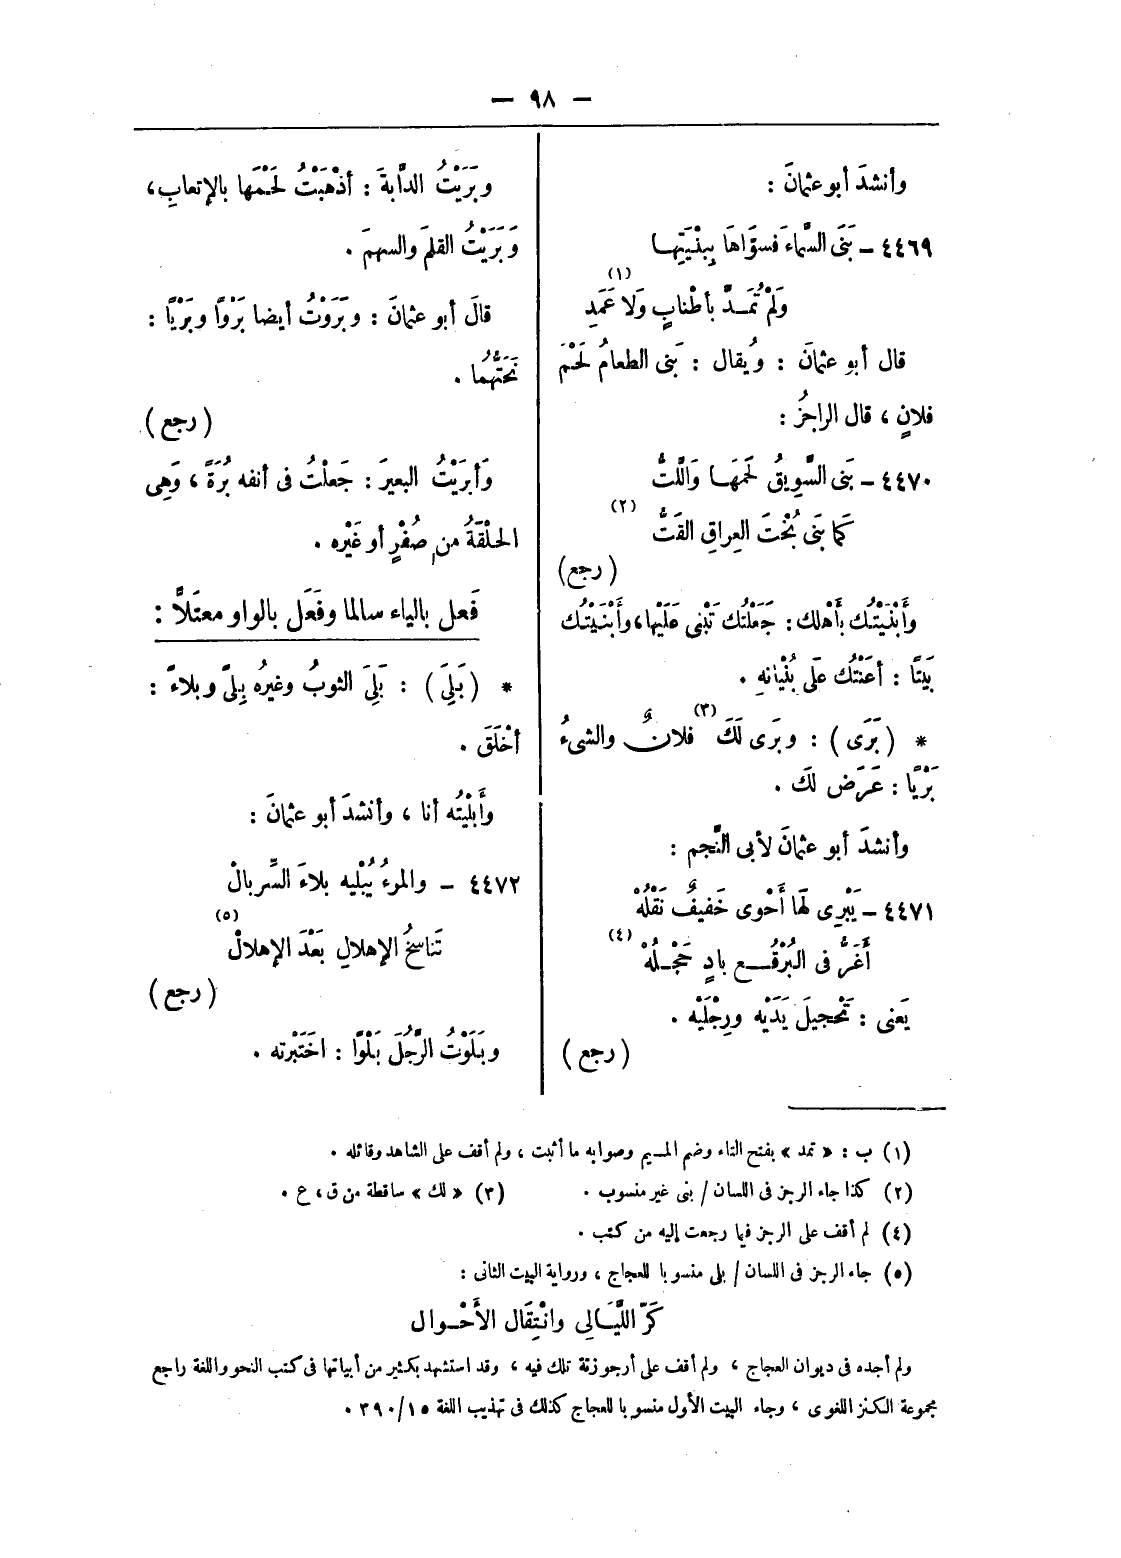 — ٩٨ —
وأنشدَ أبو عثمانَ :
٤٤٦٩ – بَنَى السَّماءَ فسوَّاهَا ببِنْيَتِها
وَلَمْ تُمَدَّ بأطْنابٍ وَلا عَمَدِ (١)
قال أبو عثمانَ : ويُقال : بَنى الطعامُ لَحْمَ
فلانٍ ، قال الراجزُ :
٤٤٧٠ – بَنى السَّوِيقُ لَحمَها وَاللَّتُّ
كَما بَنَى بُخْتَ العِراقِ القَتُّ (٢)
( رجع )
وأَبْنَيْتُك بأَهلك : جَعَلْتُك تَبْنى عَلَيْها، وأَبْنَيْتُك
بَيتًا : أعَنْتُك عَلَى بُنْيانهِ .
* ( بَرَى ) : وبَرَى لَكَ (٣) فلانٌ والشىءُ
بَرْيًا : عَرَض لكَ .
وأنشدَ أبو عثمانَ لأبى النَّجم :
٤٤٧١ – يَبْرِى لَها أَحْوى خَفيفٌ نَقْلُهْ
أَغَرُّ فى البُرْقُع بادٍ حَجْلُهْ (٤)
يَعنى : تَحْجيلَ يَدَيْه ورِجْلَيْه .
( رجع )
وبَرَيْتُ الدَّابةَ : أذْهَبْتُ لَحْمَها بالإتعابِ،
وَبَرَيْتُ القلمَ والسهمَ .
قالَ أبو عثمانَ : وبَرَوْتُ أيضا بَرْوًا وبَرْيًا :
نَحَتُّهُما .
( رجع )
وَأَبرَيْتُ البعيرَ : جَعلْتُ فى أنفه بُرَةً ، وَهِى
الحلْقَةُ من صُفْرٍ أو غَيْره .
فَعل بالياء سالما وفَعَل بالواو معتَلاًّ :
* ( بَلِىَ ) : بَلِىَ الثوبُ وغيرُه بِلىً وبلاءً :
أخْلَقَ .
وأَبْلَيْتُه أنا ، وأنشدَ أبو عثمانَ :
٤٤٧٢ – والمرءُ يُبْليه بلاءَ السِّربالْ
تَناسخُ الإهلالِ بَعْدَ الإهلالْ (٥)
( رجع )
وبَلَوْتُ الرَّجُلَ بَلْوًا : اختَبْرته .
(١) ب : « تمد » بفتح التاء وضم الميم وصوابه ما أثبت ، ولم أقف على الشاهد وقائله .
(٢) كذا جاء الرجز فى اللسان / بنى غير منسوب . (٣) « لك » ساقطة من ق ، ع .
(٤) لم أقف على الرجز فيما رجعت إليه من كتب .
(٥) جاء الرجز فى اللسان / بلى منسوبا للعجاج ، ورواية البيت الثانى :
كَرّ اللَّيَالِى وانْتِقَال الأَحْوال
ولم أجده فى ديوان العجاج ، ولم أقف على أرجوزة تلك فيه ، وقد استشهد بكثير من أبياتها فى كتب النحو واللغة راجع
مجموعة الكنز اللغوى ، وجاء البيت الأول منسوبا للعجاج كذلك فى تهذيب اللغة ١٥/ ٣٩٠ .